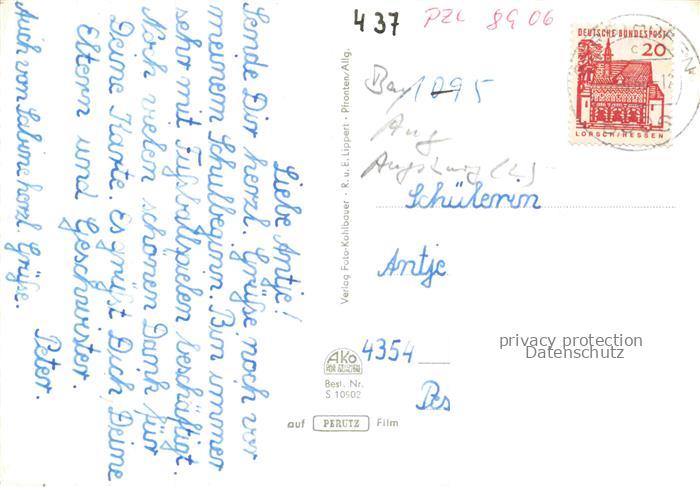 Liebe Antje!
Sende Dir herzl. Grüße noch vor
meinem Schulbeginn. Bin immer
sehr mit Fußballspielen beschäftigt.
Noch vielen schönen Dank für
Deine Karte. Es grüßt Dich, Deine
Eltern und Geschwister.
Peter.
Auch von Sabine herzl. Grüße.
Verlag Foto-Kohlbauer · R. u. E. Lippert · Pfronten/Allg.
AKO
Best. Nr.
S 10902
auf PERUTZ Film
437
PZL 8G 06
DEUTSCHE BUNDESPOST
20
LORSCH/HESSEN
Bay 1095
Aug
Augsburg (L)
Schülerin
Antje
4354
privacy protection
Datenschutz